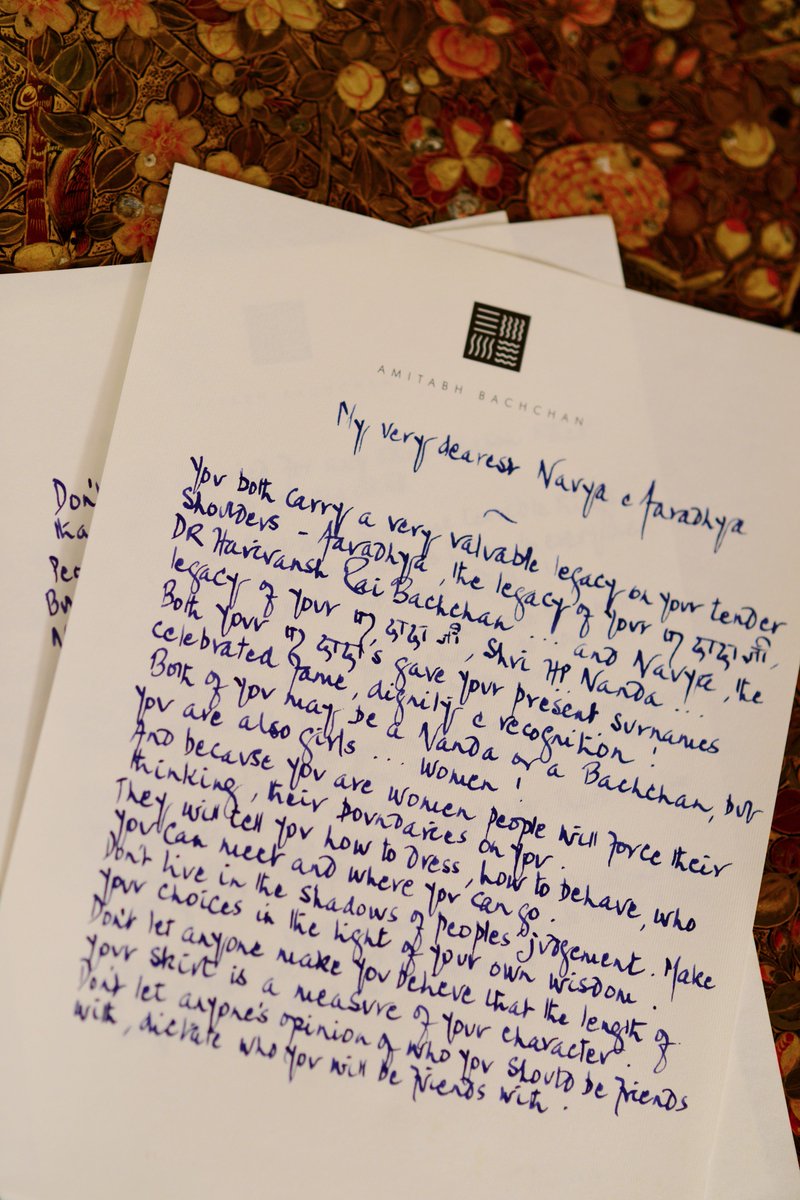 AMITABH BACHCHAN
My very dearest Navya & Aaradhya
You both carry a very valuable legacy on your tender
shoulders - Aaradhya, the legacy of your पर दादाजी,
DR Harivansh Rai Bachchan ... and Navya, the
legacy of your पर दादाजी, Shri HP Nanda ...
Both your पर दादा's gave your present surnames
celebrated fame, dignity & recognition!
Both of you may be a Nanda or a Bachchan, but
you are also girls ... women!
And because you are women people will force their
thinking, their boundaries on you.
They will tell you how to dress, how to behave, who
you can meet and where you can go.
Don't live in the shadows of peoples' judgement. Make
your choices in the light of your own wisdom.
Don't let anyone make you believe that the length of
your skirt is a measure of your character.
Don't let anyone's opinion of who you should be friends
with, dictate who you will be friends with.
Don't